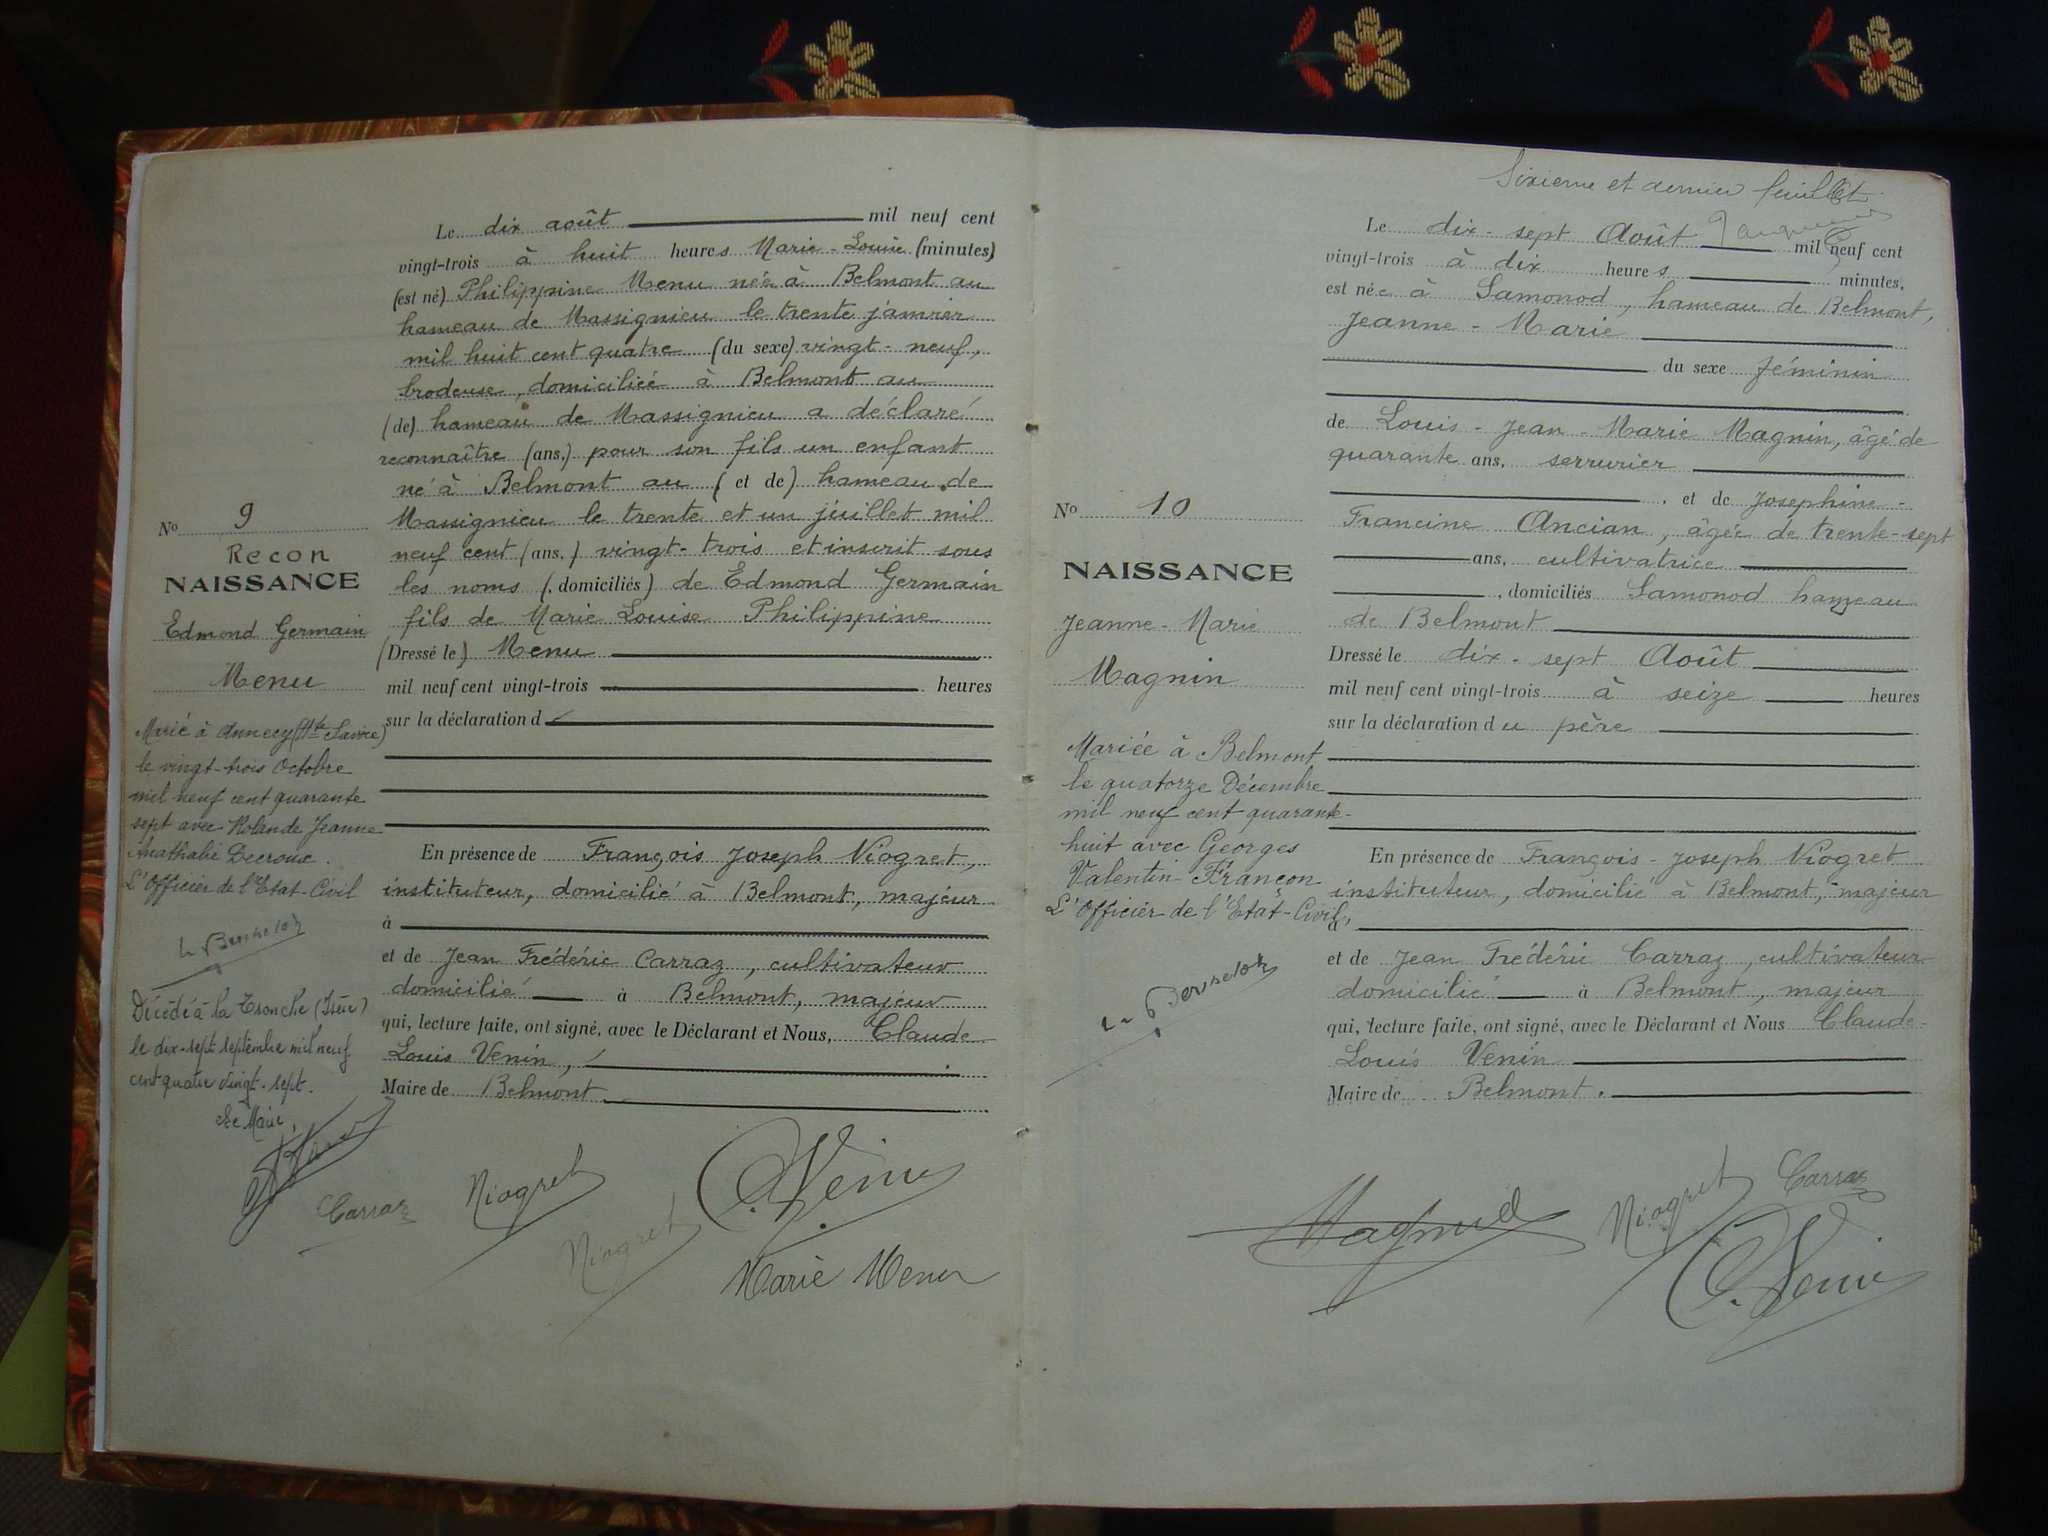 N° 9
Recon
NAISSANCE
Edmond Germain
Menu
Marié à Annecy (Hte Savoie)
le vingt-trois Octobre
mil neuf cent quarante
sept avec Rolande Jeanne
Decroux.
L'Officier de l'Etat-Civil
Décédé à la Tronche (Isère)
le dix-sept septembre mil neuf
cent quatre vingt-sept.
Le Maire,
Le dix août mil neuf cent
vingt-trois à huit heures Marie-Louise (minutes)
(est né) Philippine Menu née à Belmont au
hameau de Massignieu le trente janvier
mil huit cent quatre (du sexe) vingt-neuf,
brodeuse, domiciliée à Belmont au
(de) hameau de Massignieu a déclaré
reconnaître (ans,) pour son fils un enfant
né à Belmont au (et de) hameau de
Massignieu le trente et un juillet mil
neuf cent (ans,) vingt-trois et inscrit sous
les noms (, domiciliés) de Edmond Germain
fils de Marie Louise Philippine
(Dressé le) Menu
mil neuf cent vingt-trois heures
sur la déclaration d
En présence de François Joseph Niogret,
instituteur, domicilié à Belmont, majeur
à
et de Jean Frédéric Carraz, cultivateur
domicilié à Belmont, majeur
qui, lecture faite, ont signé, avec le Déclarant et Nous, Claude
Louis Venin,
Maire de Belmont
Carraz Niogret C. Venin
Niogret
Marie Menu
Sixieme et dernier feuillet
N° 10
NAISSANCE
Jeanne-Marie
Magnin
Mariée à Belmont
le quatorze Décembre
mil neuf cent quarante-
huit avec Georges
Valentin Françon
L'Officier de l'Etat-Civil,
Le dix-sept Août mil neuf cent
vingt-trois à dix heures minutes,
est née à Samonod, hameau de Belmont,
Jeanne-Marie
du sexe féminin
de Louis-Jean-Marie Magnin, âgé de
quarante ans, serrurier
, et de Josephine-
Francine Ancian, âgée de trente-sept
ans, cultivatrice
, domiciliés Samonod hameau
de Belmont
Dressé le dix-sept Août
mil neuf cent vingt-trois à seize heures
sur la déclaration du père
En présence de François-Joseph Niogret
instituteur, domicilié à Belmont, majeur
à
et de Jean Frédéric Carraz, cultivateur
domicilié à Belmont, majeur
qui, lecture faite, ont signé, avec le Déclarant et Nous Claude-
Louis Venin
Maire de Belmont.
Magnin Niogret Carraz
C. Venin